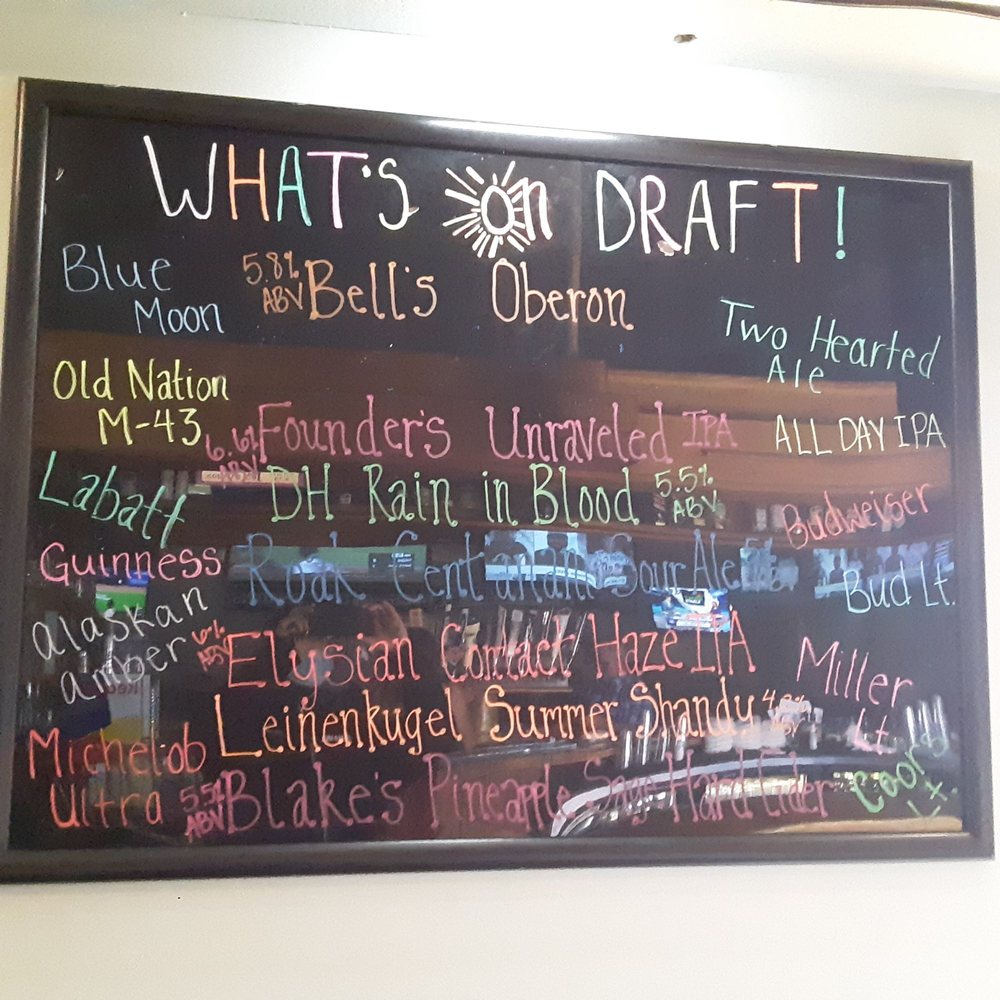 WHAT'S on DRAFT!
Blue
Moon
5.8%
ABV
Bell's Oberon
Two Hearted
Ale
Old Nation
M-43
6.6%
ABV
Founder's Unraveled IPA
ALL DAY IPA
Labatt
DH Rain in Blood
5.5%
ABV
Budweiser
Guinness
Roak Centariam Sour Ale
Bud Lt.
alaskan
amber
6%
ABV
Elysian Contact Haze IPA
Miller
Lt.
Leinenkugel Summer Shandy
Michelob
Ultra
5.5%
ABV
Blake's Pineapple Sage Hard Cider
Coors
Lt.